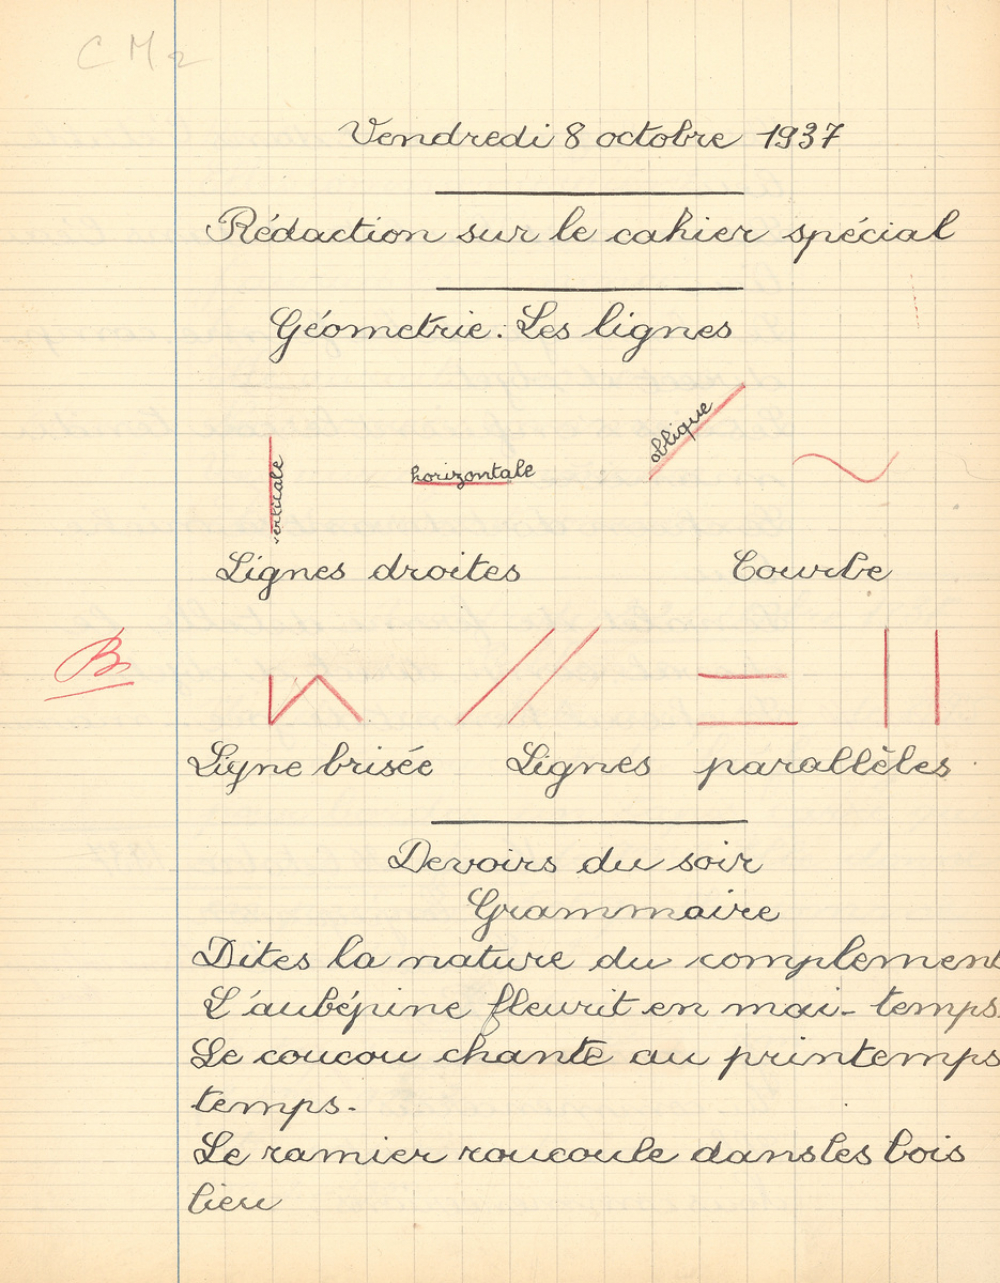 CM2
Vendredi 8 octobre 1937
Rédaction sur le cahier spécial
Géometrie. Les lignes
verticale
horizontale
oblique
Lignes droites
Courbe
B
Ligne brisée
Lignes parallèles
Devoirs du soir
Grammaire
Dites la nature du complement
L'aubépine fleurit en mai - temps.
Le coucou chante au printemps
temps.
Le ramier roucoule dans les bois
lieu